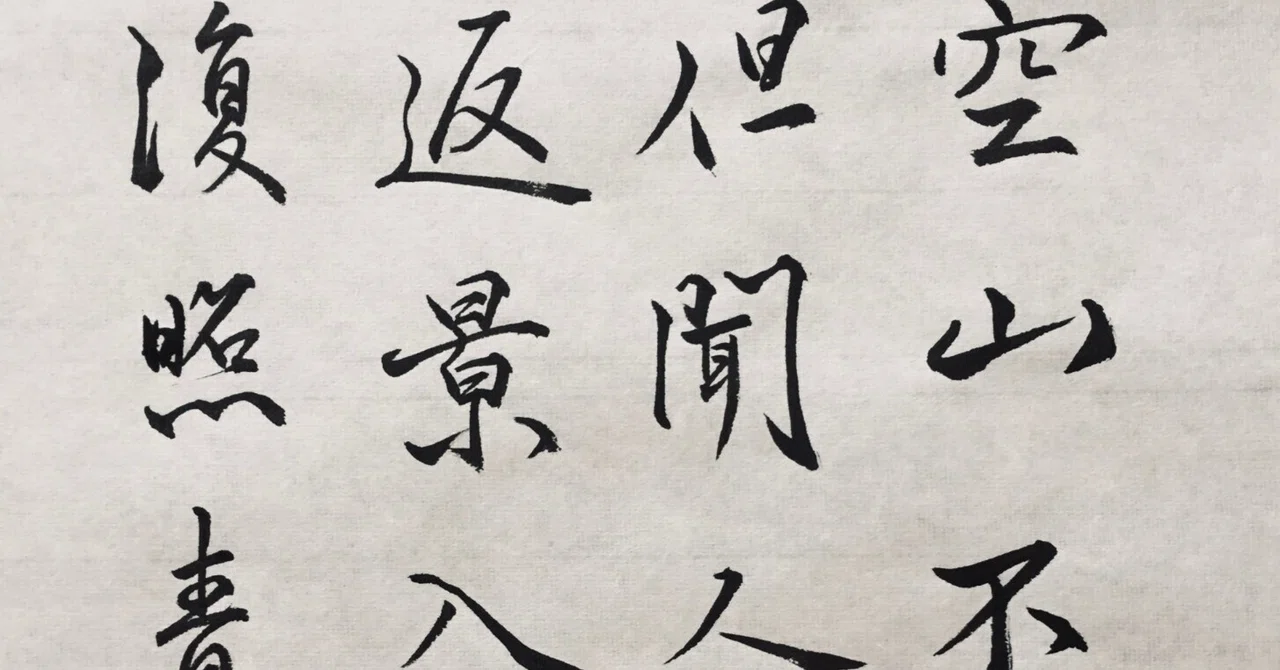 空山不
但聞人
返景入
復照青